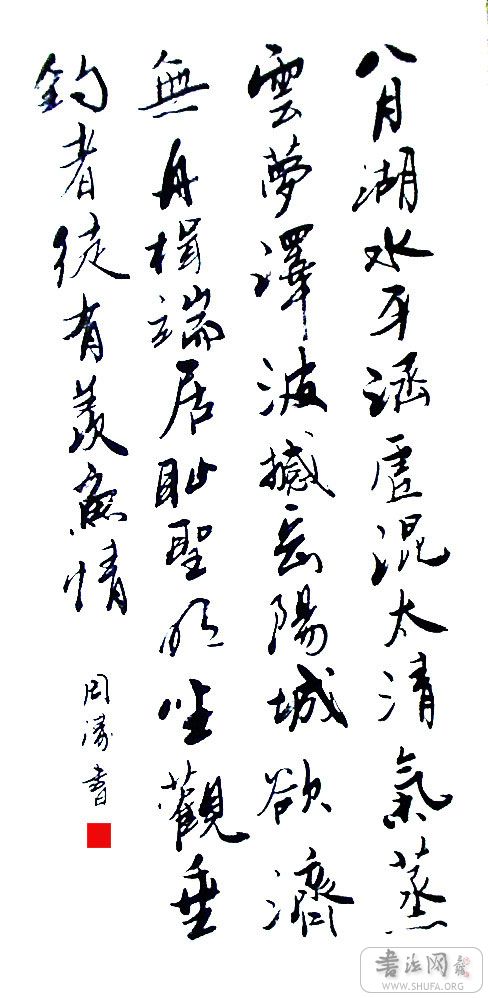 八月湖水平涵虛混太清氣蒸
雲夢澤波撼岳陽城欲濟
無舟楫端居恥聖明坐觀垂
釣者徒有羨魚情
周濤書
書法网
WWW.SHUFA.ORG